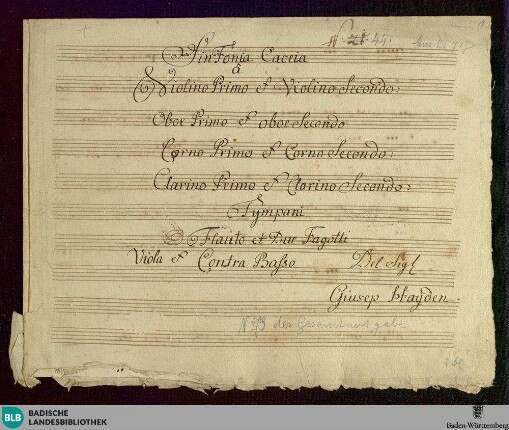 N. 21. 44.
Sinfonia Caccia
â
Violino Primo et Violino Secondo:
Oboe Primo et oboe Secondo
Corno Primo et Corno Secondo:
Clarino Primo et Clarino Secondo:
Tÿmpani
Flauto et Due Fagotti
Viola et Contra Basso
Del Sigl
Giusep Haÿden.
N° 73 der Gesamtausgabe
BLB
BADISCHE
LANDESBIBLIOTHEK
Baden-Württemberg